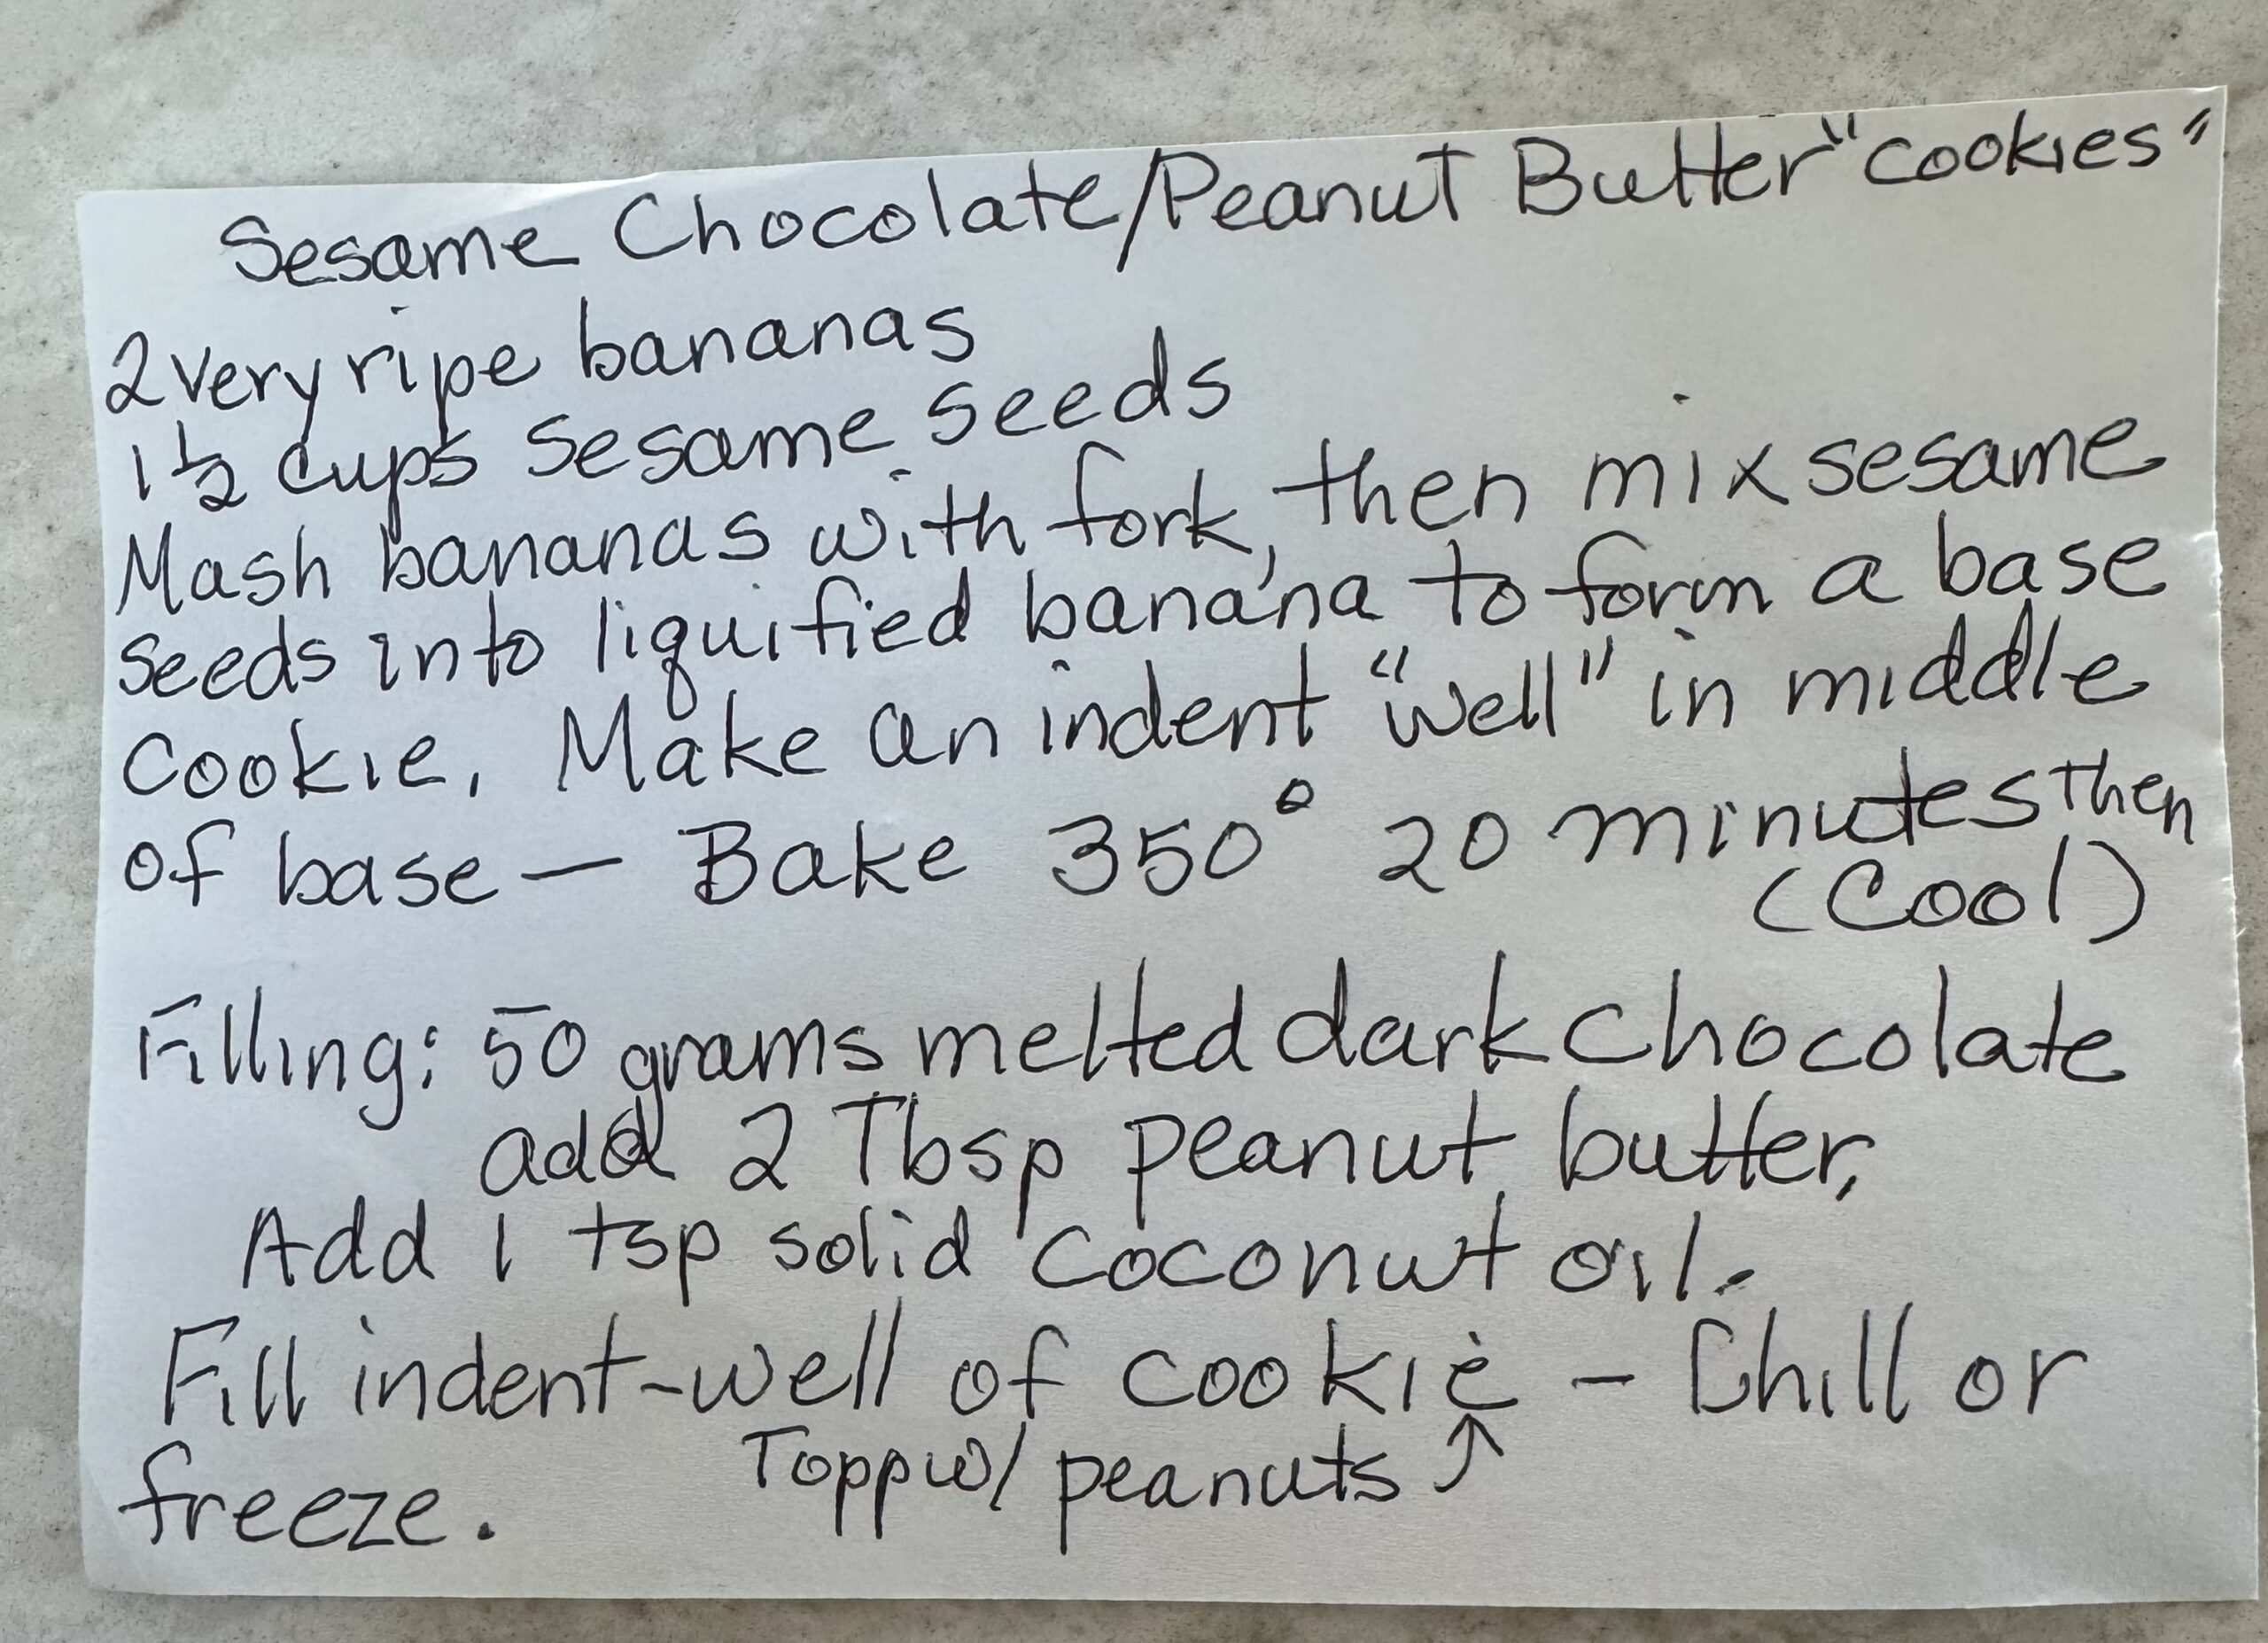 Sesame Chocolate/Peanut Butter "cookies"
2 very ripe bananas
1 ½ cups sesame seeds
Mash bananas with fork, then mix sesame
seeds into liquified banana to form a base
cookie. Make an indent "well" in middle
of base — Bake 350° 20 minutes then
(Cool)
Filling: 50 grams melted dark chocolate
add 2 Tbsp peanut butter,
Add 1 tsp solid coconut oil.
Fill indent-well of cookie – Chill or
freeze. Topp w/ peanuts ↑